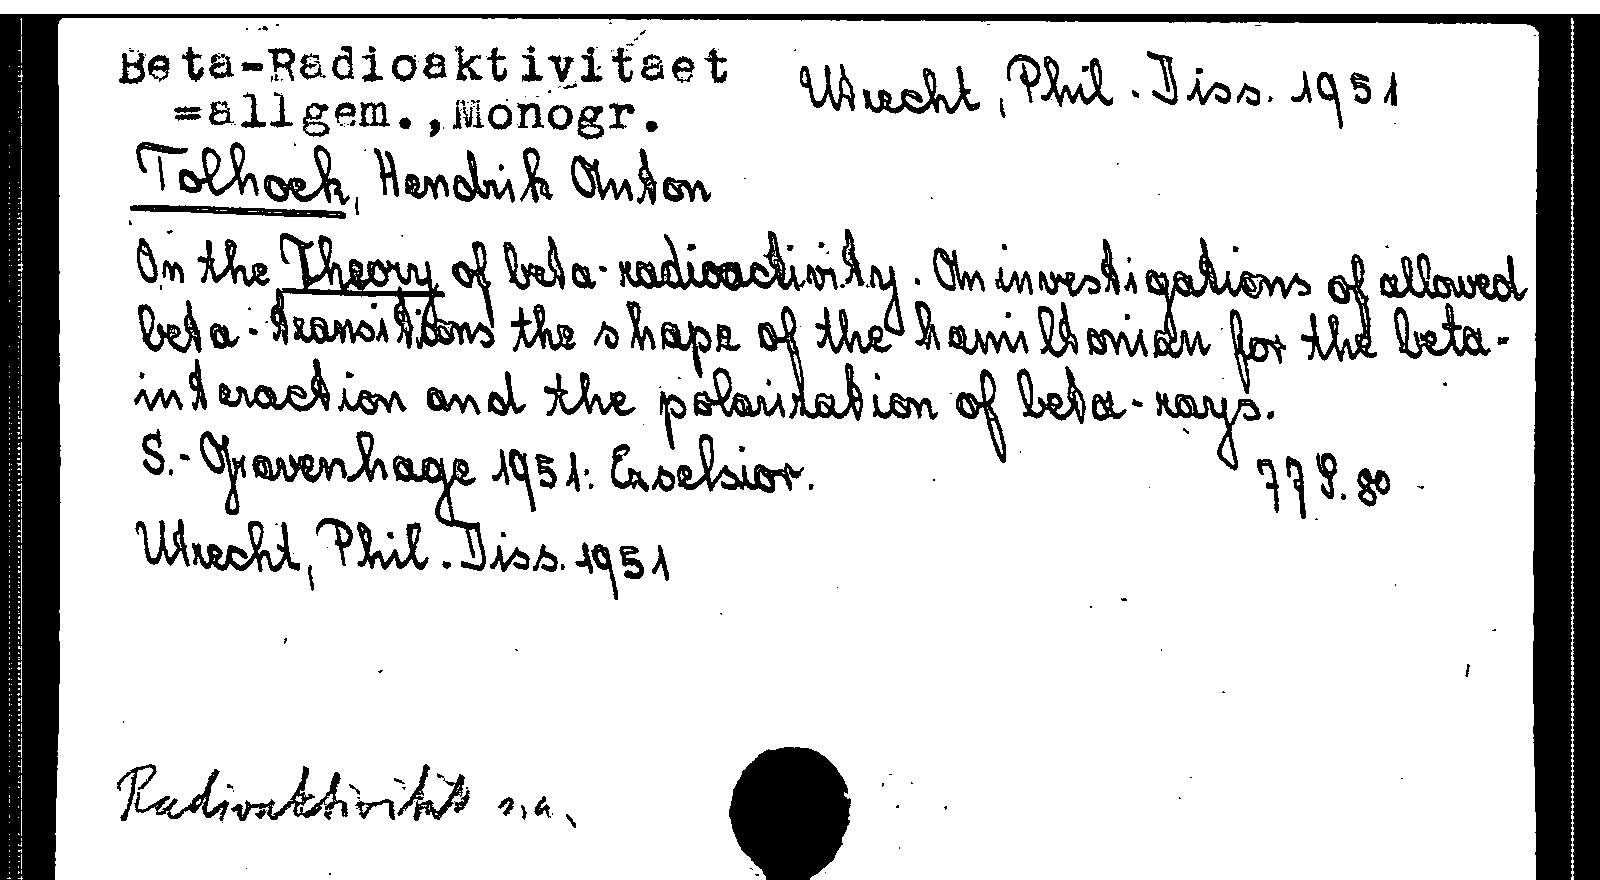 Beta-Radioaktivitaet
=allgem.,Monogr.
Utrecht, Phil. Diss. 1951
Tolhoek, Hendrik Anton
On the Theory of beta-radioactivity. An investigations of allowed
beta-transitions the shape of the hamiltonian for the beta-
interaction and the polarization of beta-rays.
S.-Gravenhage 1951: Exselsior. 77 S. 80
Utrecht, Phil. Diss. 1951
Radioaktivität s.a.